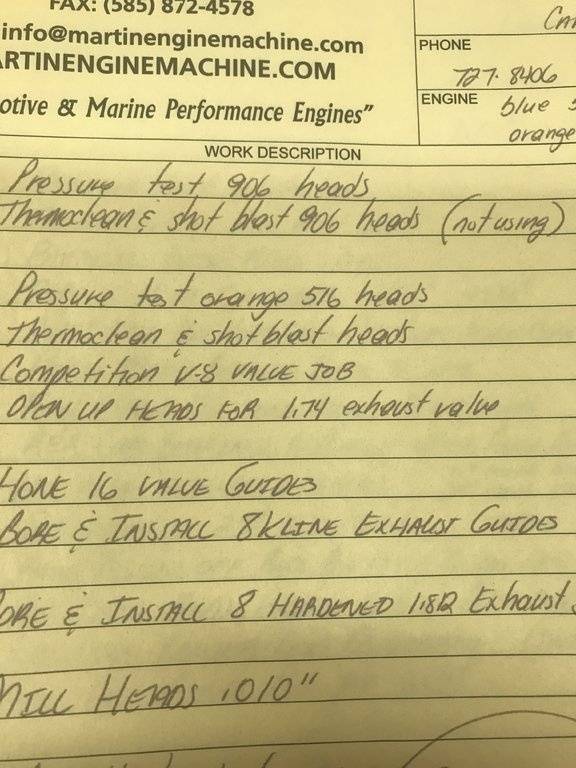 FAX: (585) 872-4578
info@martinenginemachine.com
ARTINENGINEMACHINE.COM
otive & Marine Performance Engines"
PHONE
727-8406
ENGINE blue
orange
WORK DESCRIPTION
Pressure test 906 heads
Thermoclean & shot blast 906 heads (not using)
Pressure test orange 516 heads
Thermoclean & shot blast heads
Competition V-8 VALVE JOB
OPEN UP HEADS FOR 1.74 exhaust valve
HONE 16 VALVE GUIDES
BORE & INSTALL 8 KLINE EXHAUST GUIDES
ORE & INSTALL 8 HARDENED Exhaust
MILL HEADS .010"